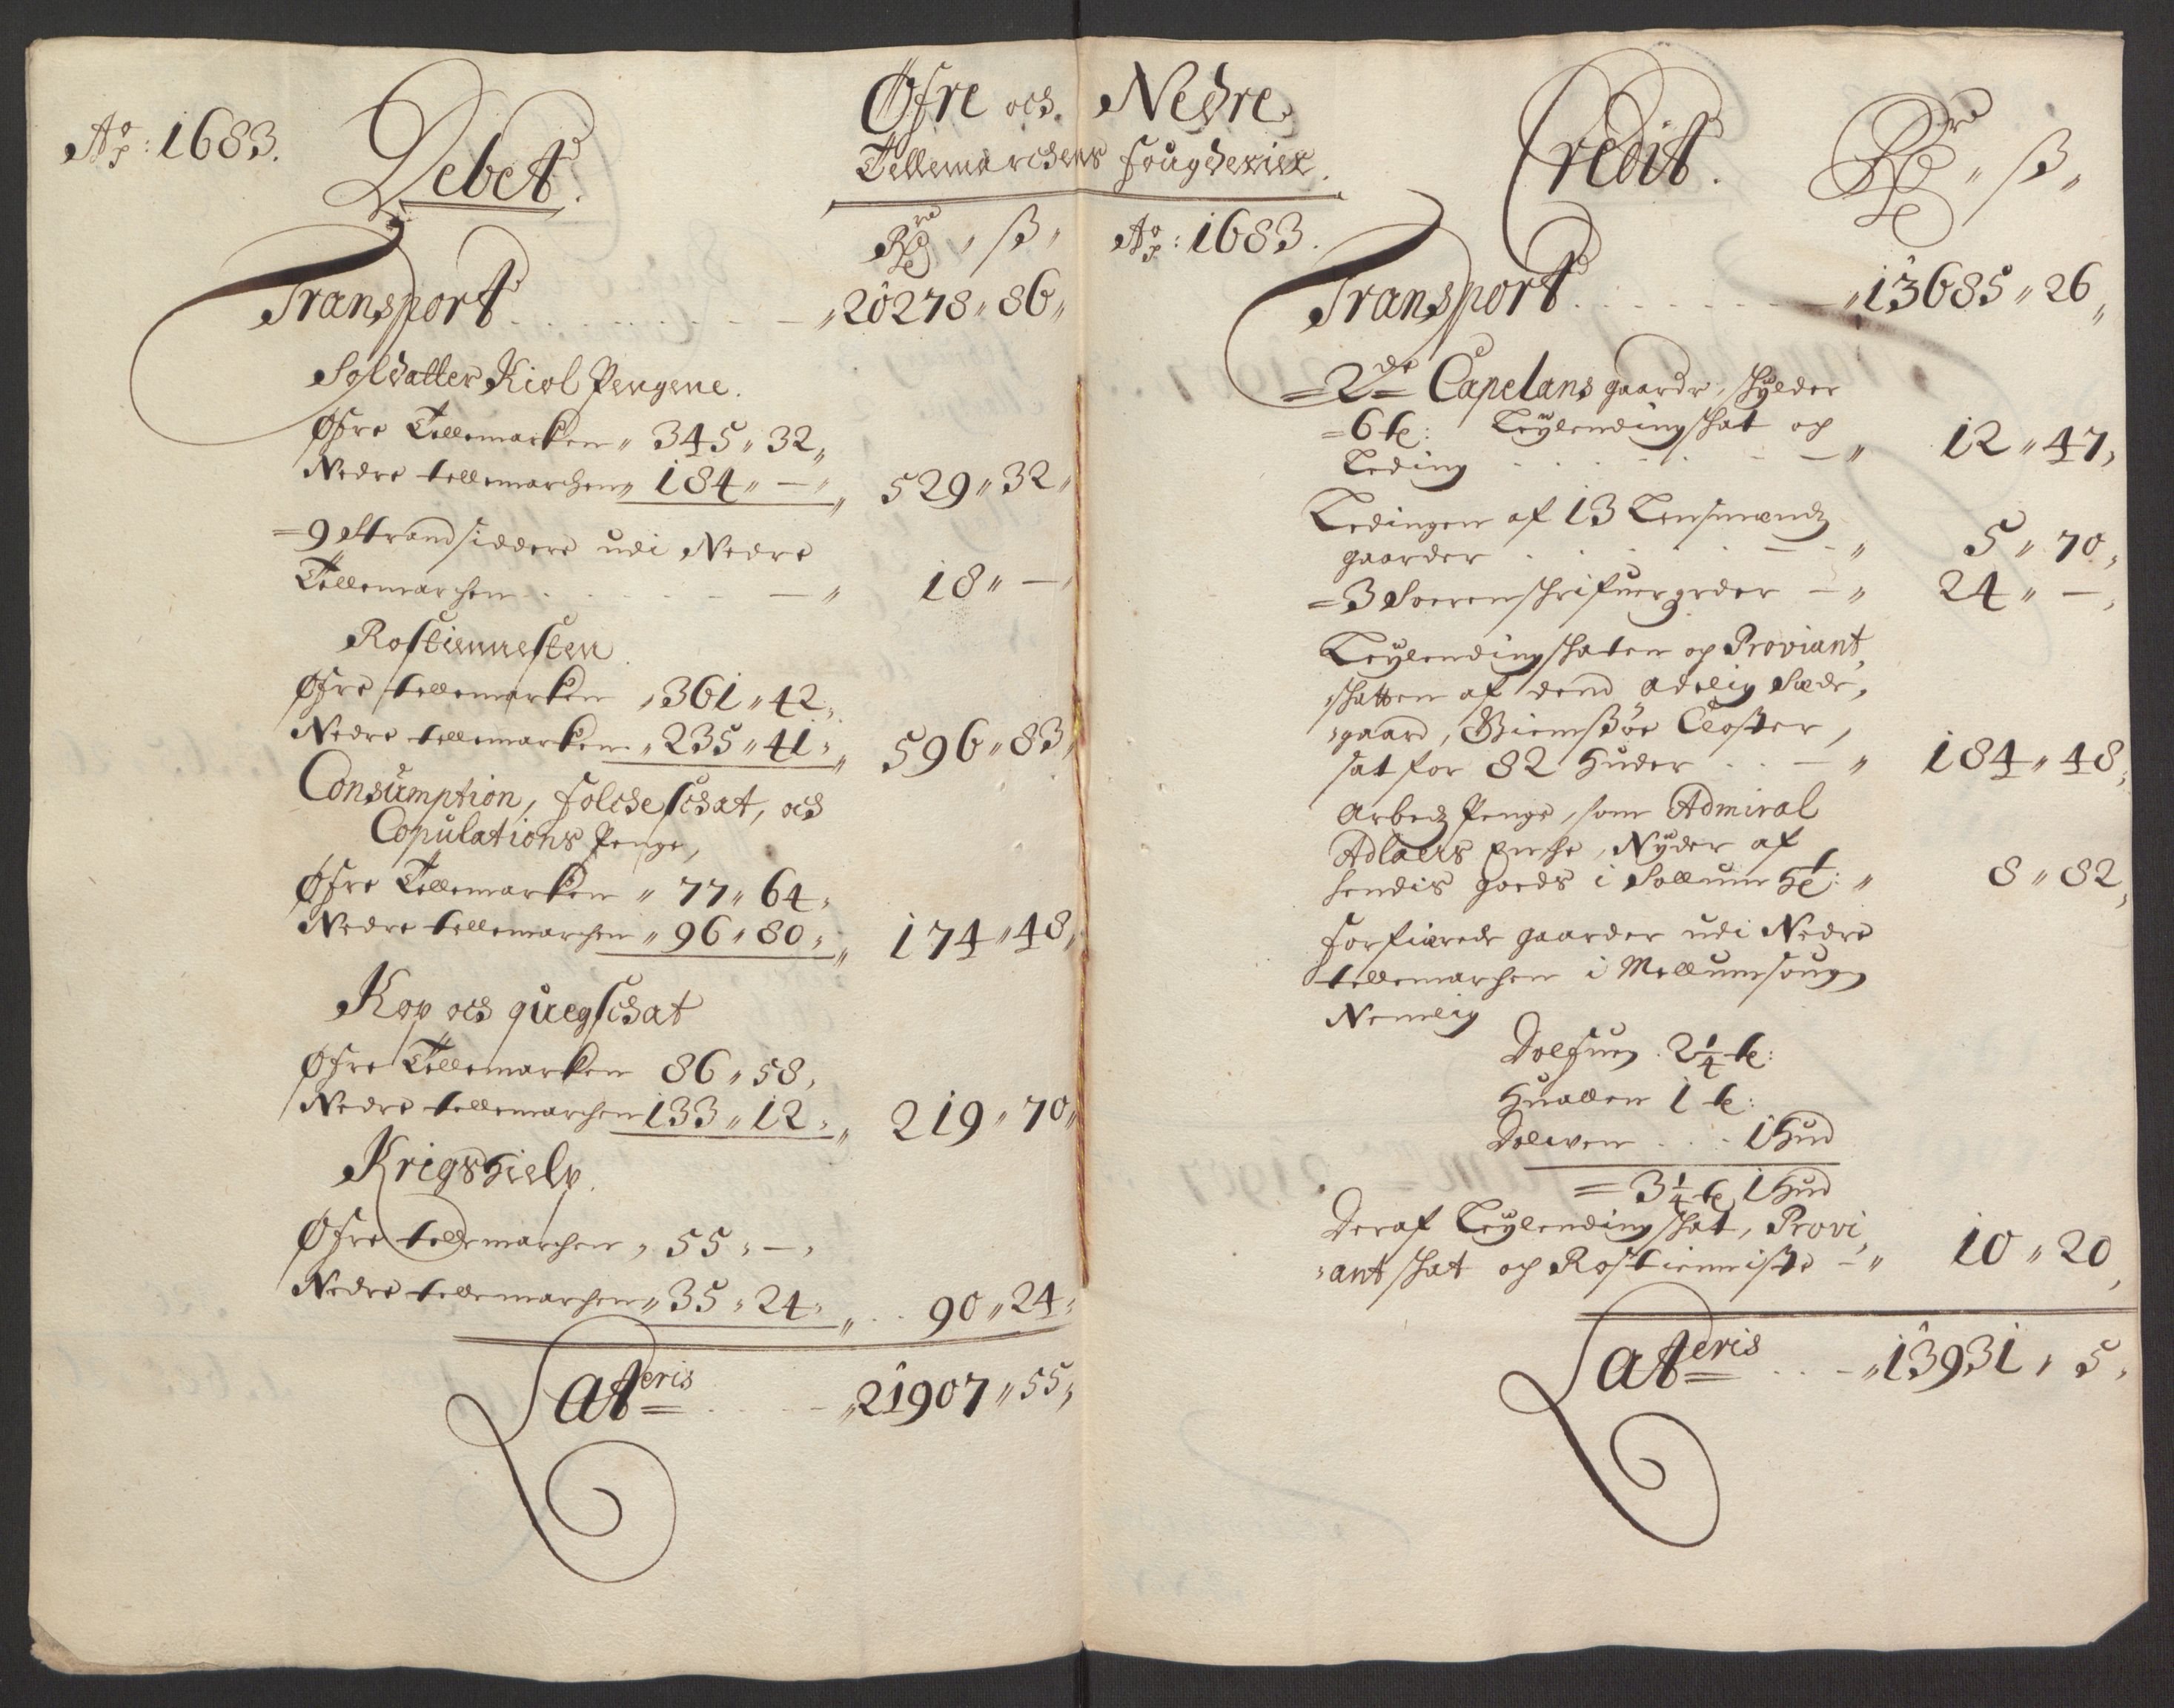 Aō: 1683.
Debet.
Øfre och Nedre
Tellemarchens fougderier.
Rdr " ß "
Transport " 20278 " 86 "
Soldatter Kiol Pengene.
Øfre Tellemarken " 345 " 32 "
Nedre tellemarchen " 184 " — " 529 " 32 "
= 9 Strandsiddere udi Nedre
Tellemarchen " 18 " —
Rostiennesten
Øfre tellemarken " 361 " 42 "
Nedre tellemarken " 235 " 41 " 596 " 83 "
Consumption, folcheschat, och
Copulations Penge,
Øfre Tellemarken " 77 " 64 "
Nedre tellemarchen " 96 " 80 " 174 " 48 "
Kop och quegschat
Øfre Tellemarken 86 " 58 "
Nedre tellemarchen 133 " 12 " 219 " 70 "
Krigshielp.
Øfre tellemarchen " 55 " — "
Nedre tellemarchen " 35 " 24 " 90 " 24 "
Lateris " 21907 " 55 "
Credit.
Rdr " ß "
Aō: 1683.
Transport " 13685 " 26 "
= 2de Capelans gaardr, schylder
= 6 tr: Leylendingschat og
Leding " 12 " 47 "
Ledingen af 13 Lensmendz
gaarder " 5 " 70 "
= 3 Sorenschrifuergrder " 24 " — "
Leylendingschaten og Proviant
schatten af dend adelig Sæde,
gaard, Giemsßøe Closter,
sat for 82 Huder " 184 " 48 "
Arbedz Penge, som Admiral
Adlaers Enche, Nyder af
hendis goeds i Sollum " 8 " 82 "
forfiærede gaarder udi Nedre
tellemarchen i Mellumsougn
Nemlig
2 1/4 tr:
Huallen 1 tr:
1 Hud
= 3 1/4 tr 1 Hud
Deraf Leylendingschat, Provi
antschat og Rostienniste " 10 " 20
Lateris " 13931 " 5 "